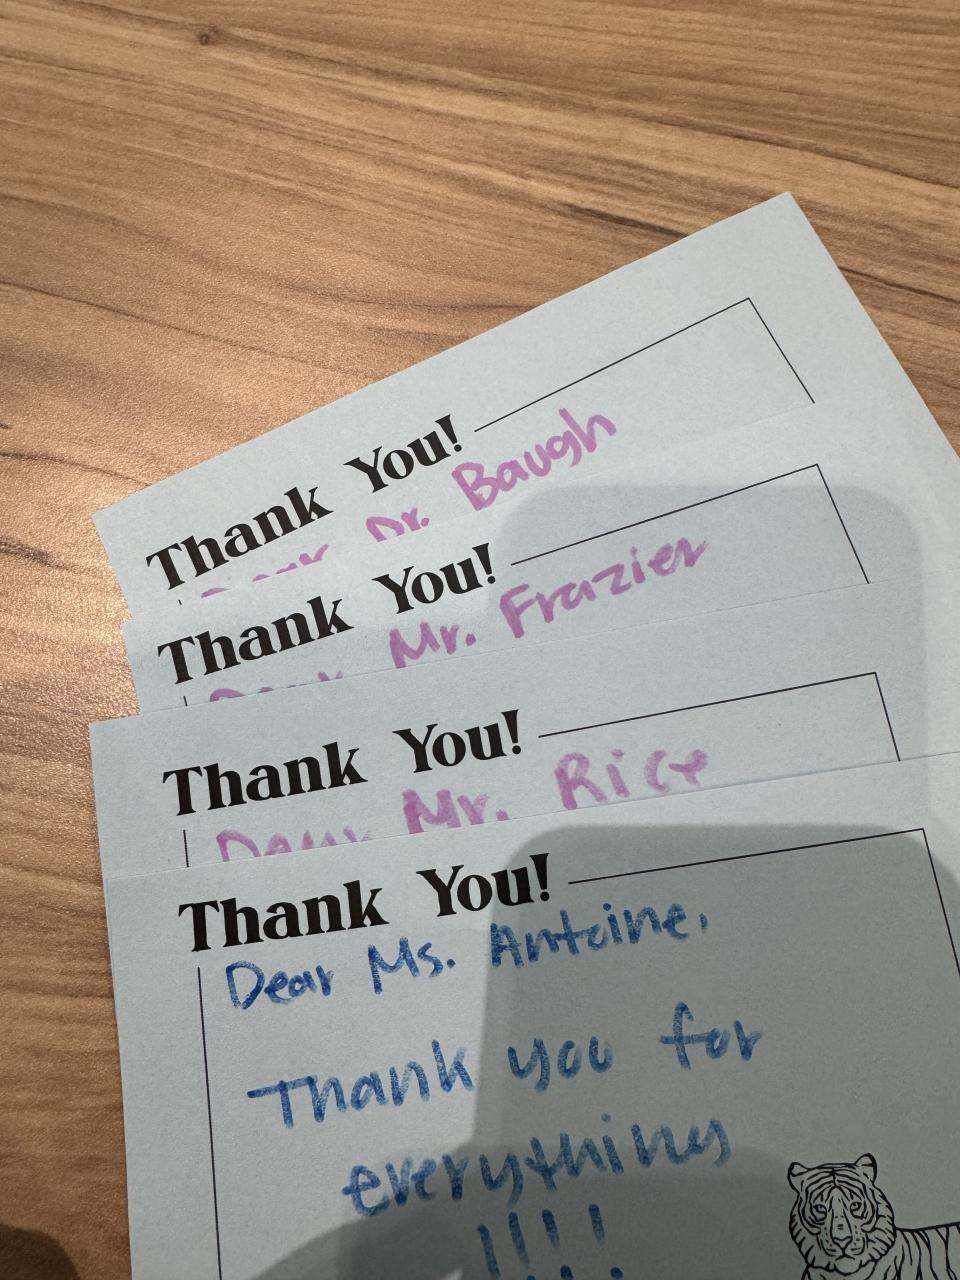 Thank You!
Dear Dr. Baugh
Thank You!
Dear Mr. Frazier
Thank You!
Dear Mr. Rice
Thank You!
Dear Ms. Antoine,
Thank you for
everything
!!!!